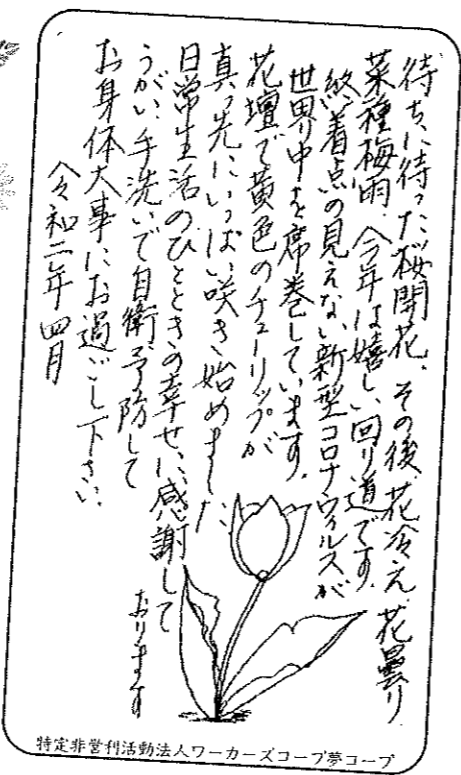 待ちに待った桜開花、その後、花冷え、花曇り
菜種梅雨、今年は嬉しい回り道です。
終着点の見えない新型コロナウィルスが
世界中を席巻しています。
花壇で黄色のチューリップが
真っ先にいっぱい咲き始めました
日常生活のひとときの幸せに感謝して
おります
うがい、手洗いで自衛予防して
お身体大事にお過ごし下さい。
令和二年四月
特定非営利活動法人ワーカーズコープ夢コープ